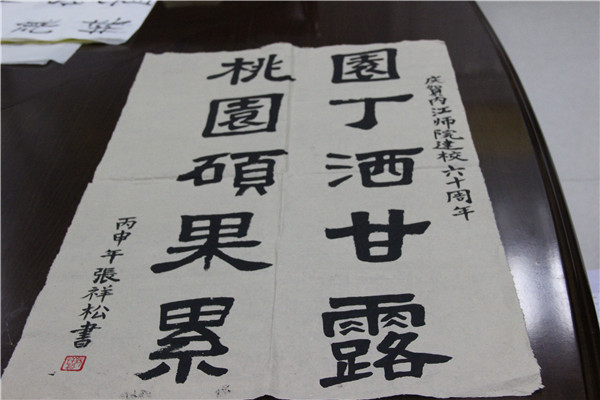 庆贺内江师院建校六十周年
園丁洒甘露
桃園碩果累
丙申年張祥松書